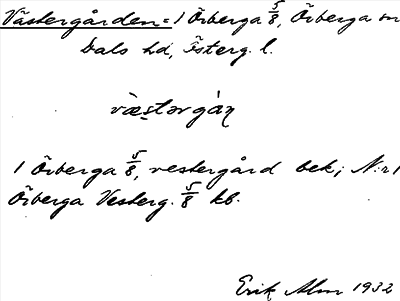 Västergården = 1 Örberga 5/8, Örberga sn
Dals hd, Österg. l.
væstərgàn
1 Örberga 5/8, vestergård bek; N:r 1
Örberga Vesterg. 5/8 kb.
Erik Alm 1932